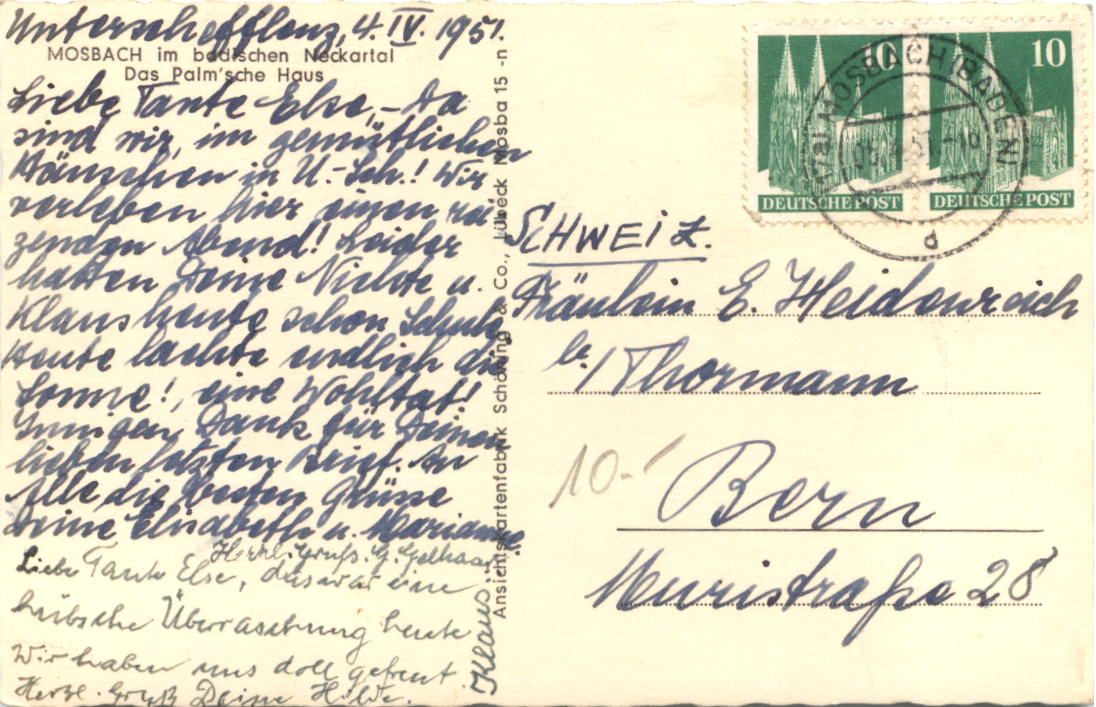 Unterschefflenz, 4. IV. 1951.
MOSBACH im badischen Neckartal
Das Palm'sche Haus
Liebe Tante Else, – Da
sind wir, im gemütlichen
Häuschen in U.-Sch.! Wir
verleben hier einen rei-
zenden Abend! Leider
hatten Deine Nichte u.
Klaus heute schon Schule
Heute lachte endlich die
Sonne!, eine Wohltat!
Innigen Dank für Deinen
lieben letzten Brief. An
Alle die besten Grüsse
Deine Elisabeth u. Marianne.
Herzl. Gruß. G. Gelhaar
Liebe Tante Else, das war eine
hübsche Überraschung heute
Wir haben uns doll gefreut.
Herzl. Gruß Deine Hilde.
Klaus
Ansichtskartenfabrik Schöning & Co., Lübeck Mosba 15 -n
10
10
DEUTSCHE POST
DEUTSCHE POST
MOSBACH (BADEN)
d
SCHWEIZ.
Fräulein E. Heidenreich
b/ Thormann
10.-
Bern
Muristraße 28